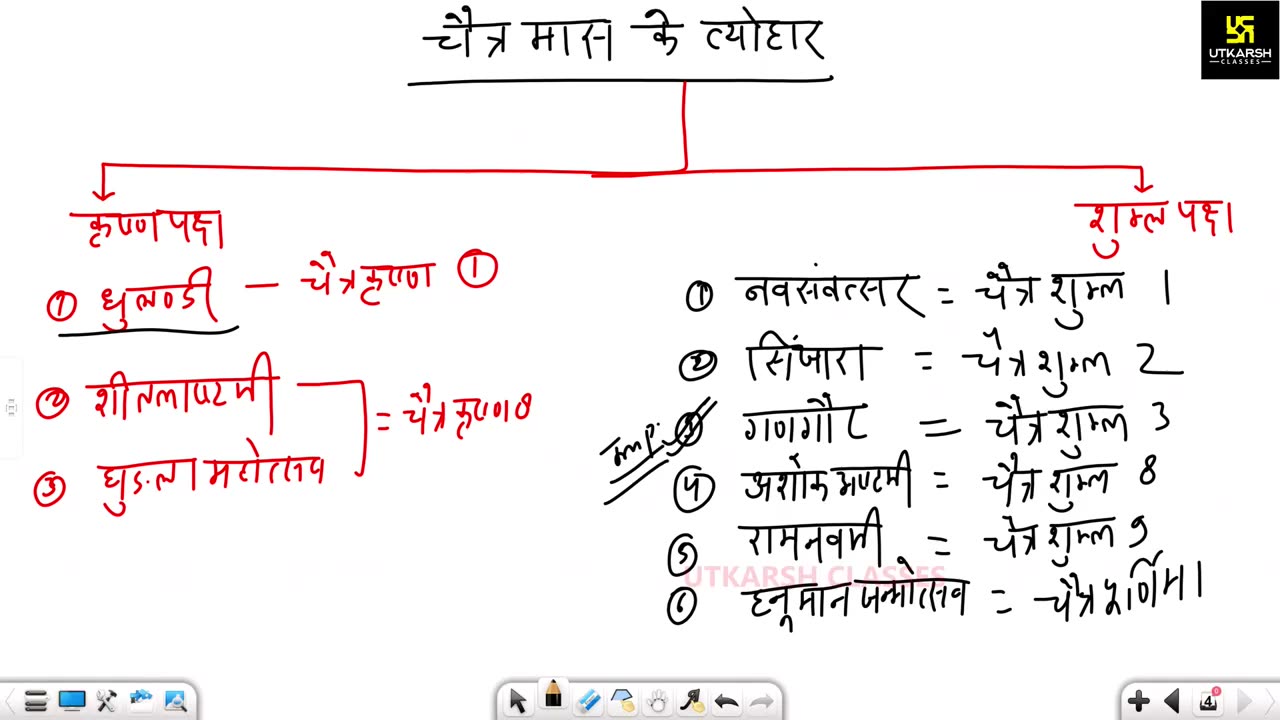 चैत्र मास के त्योहार
UTKARSH
CLASSES
कृष्ण पक्ष
① धुलण्डी – चैत्र कृष्ण ①
② शीतलाष्टमी
③ घुड़ला महोत्सव
= चैत्र कृष्ण 8
शुक्ल पक्ष
① नवसंवत्सर = चैत्र शुक्ल 1
② सिंजारा = चैत्र शुक्ल 2
Imp. ③ गणगौर = चैत्र शुक्ल 3
④ अशोक अष्टमी = चैत्र शुक्ल 8
⑤ रामनवमी = चैत्र शुक्ल 9
UTKARSH CLASSES
⑥ हनूमान जन्मोत्सव = चैत्र पूर्णिमा
4